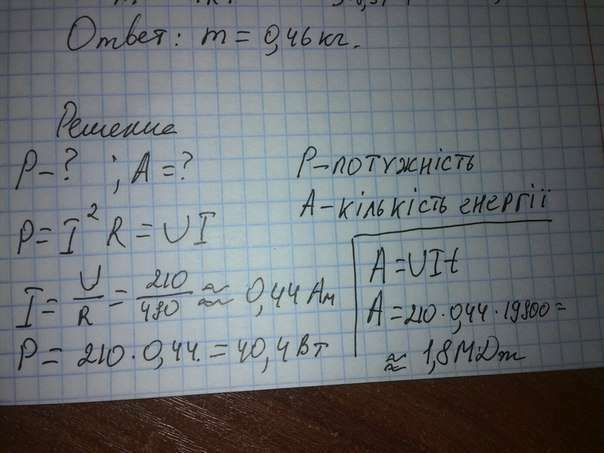 Ответ: m = 0,46 кг.
Решение
P-? ; A=?
P-потужність
A-кількість енергії
P= I² R = UI
I= U/R = 210/480 ≈ 0,44 Ам
P= 210·0,44. = 40,4 Вт
A=UIt
A=210·0,44·19800=
≈ 1,8МДж